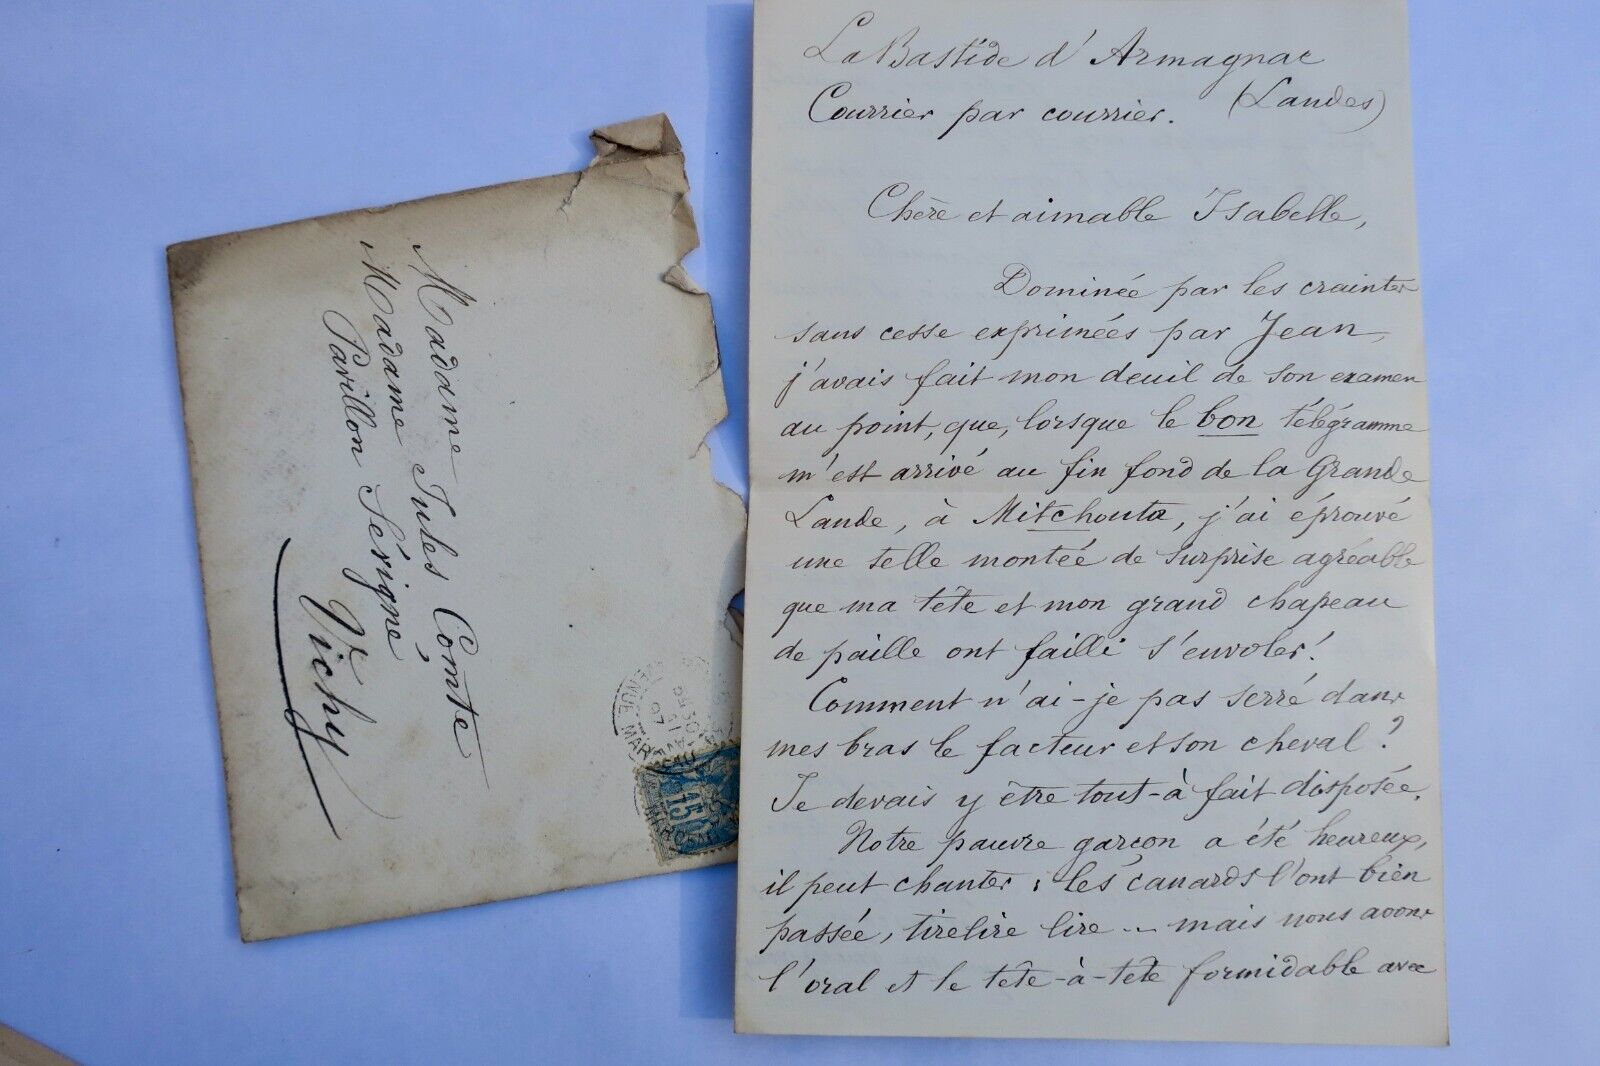 La Bastide d'Armagnac
(Landes)
Courrier par courrier.
Chère et aimable Isabelle,
Dominée par les craintes
sans cesse exprimées par Jean,
j'avais fait mon deuil de son examen
au point, que, lorsque le bon télégramme
m'est arrivé au fin fond de la Grande
Lande, à Mitchouta, j'ai éprouvé
une telle montée de surprise agréable
que ma tête et mon grand chapeau
de paille ont failli s'envoler!
Comment n'ai-je pas serré dans
mes bras le facteur et son cheval?
Je devais y être tout-à fait disposée.
Notre pauvre garçon a été heureux,
il peut chanter: les canards l'ont bien
passée, tirelire lire... mais nous avons
l'oral et le tête-à-tête formidable avec
Madame Jules Comte
Madame
Pavillon Sévigné
Vichy
AVENUE MARCEAU
15